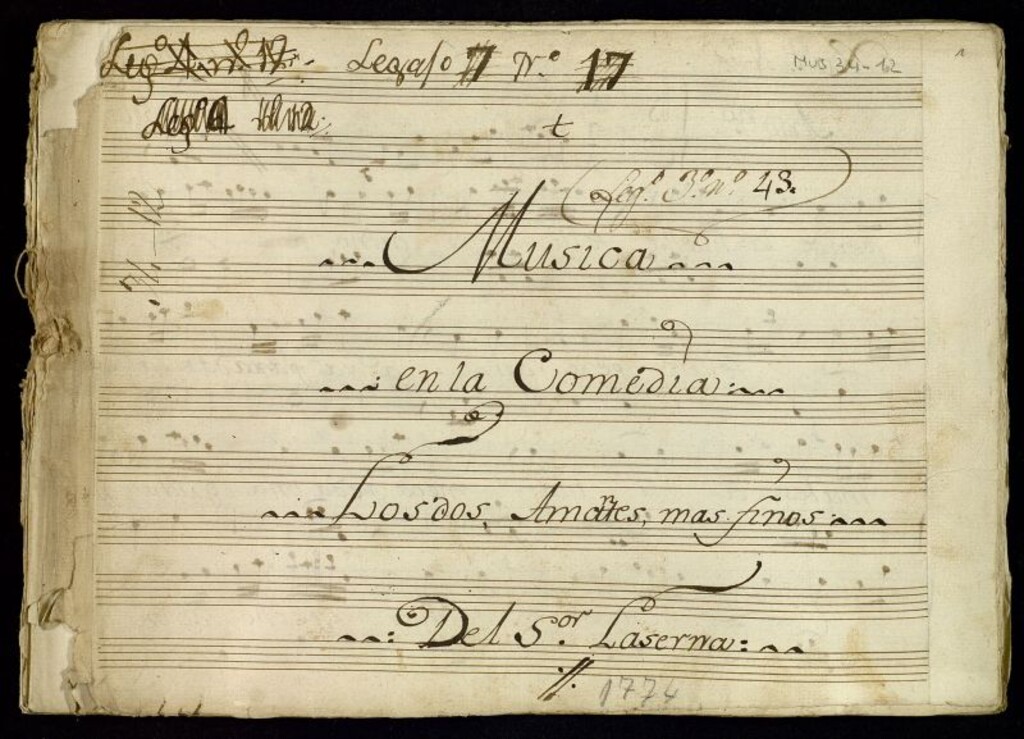 Legajo 7 N.º 17
Mus 34-12
1
t
Leg.º 3.º n.º 43.
Musica
en la Comedia
Los dos, Amātes, mas finos
Del S.or Laserna:
1774